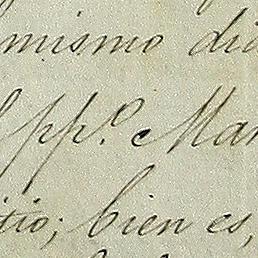 mismo di
pp.º Man
itio; bien es,